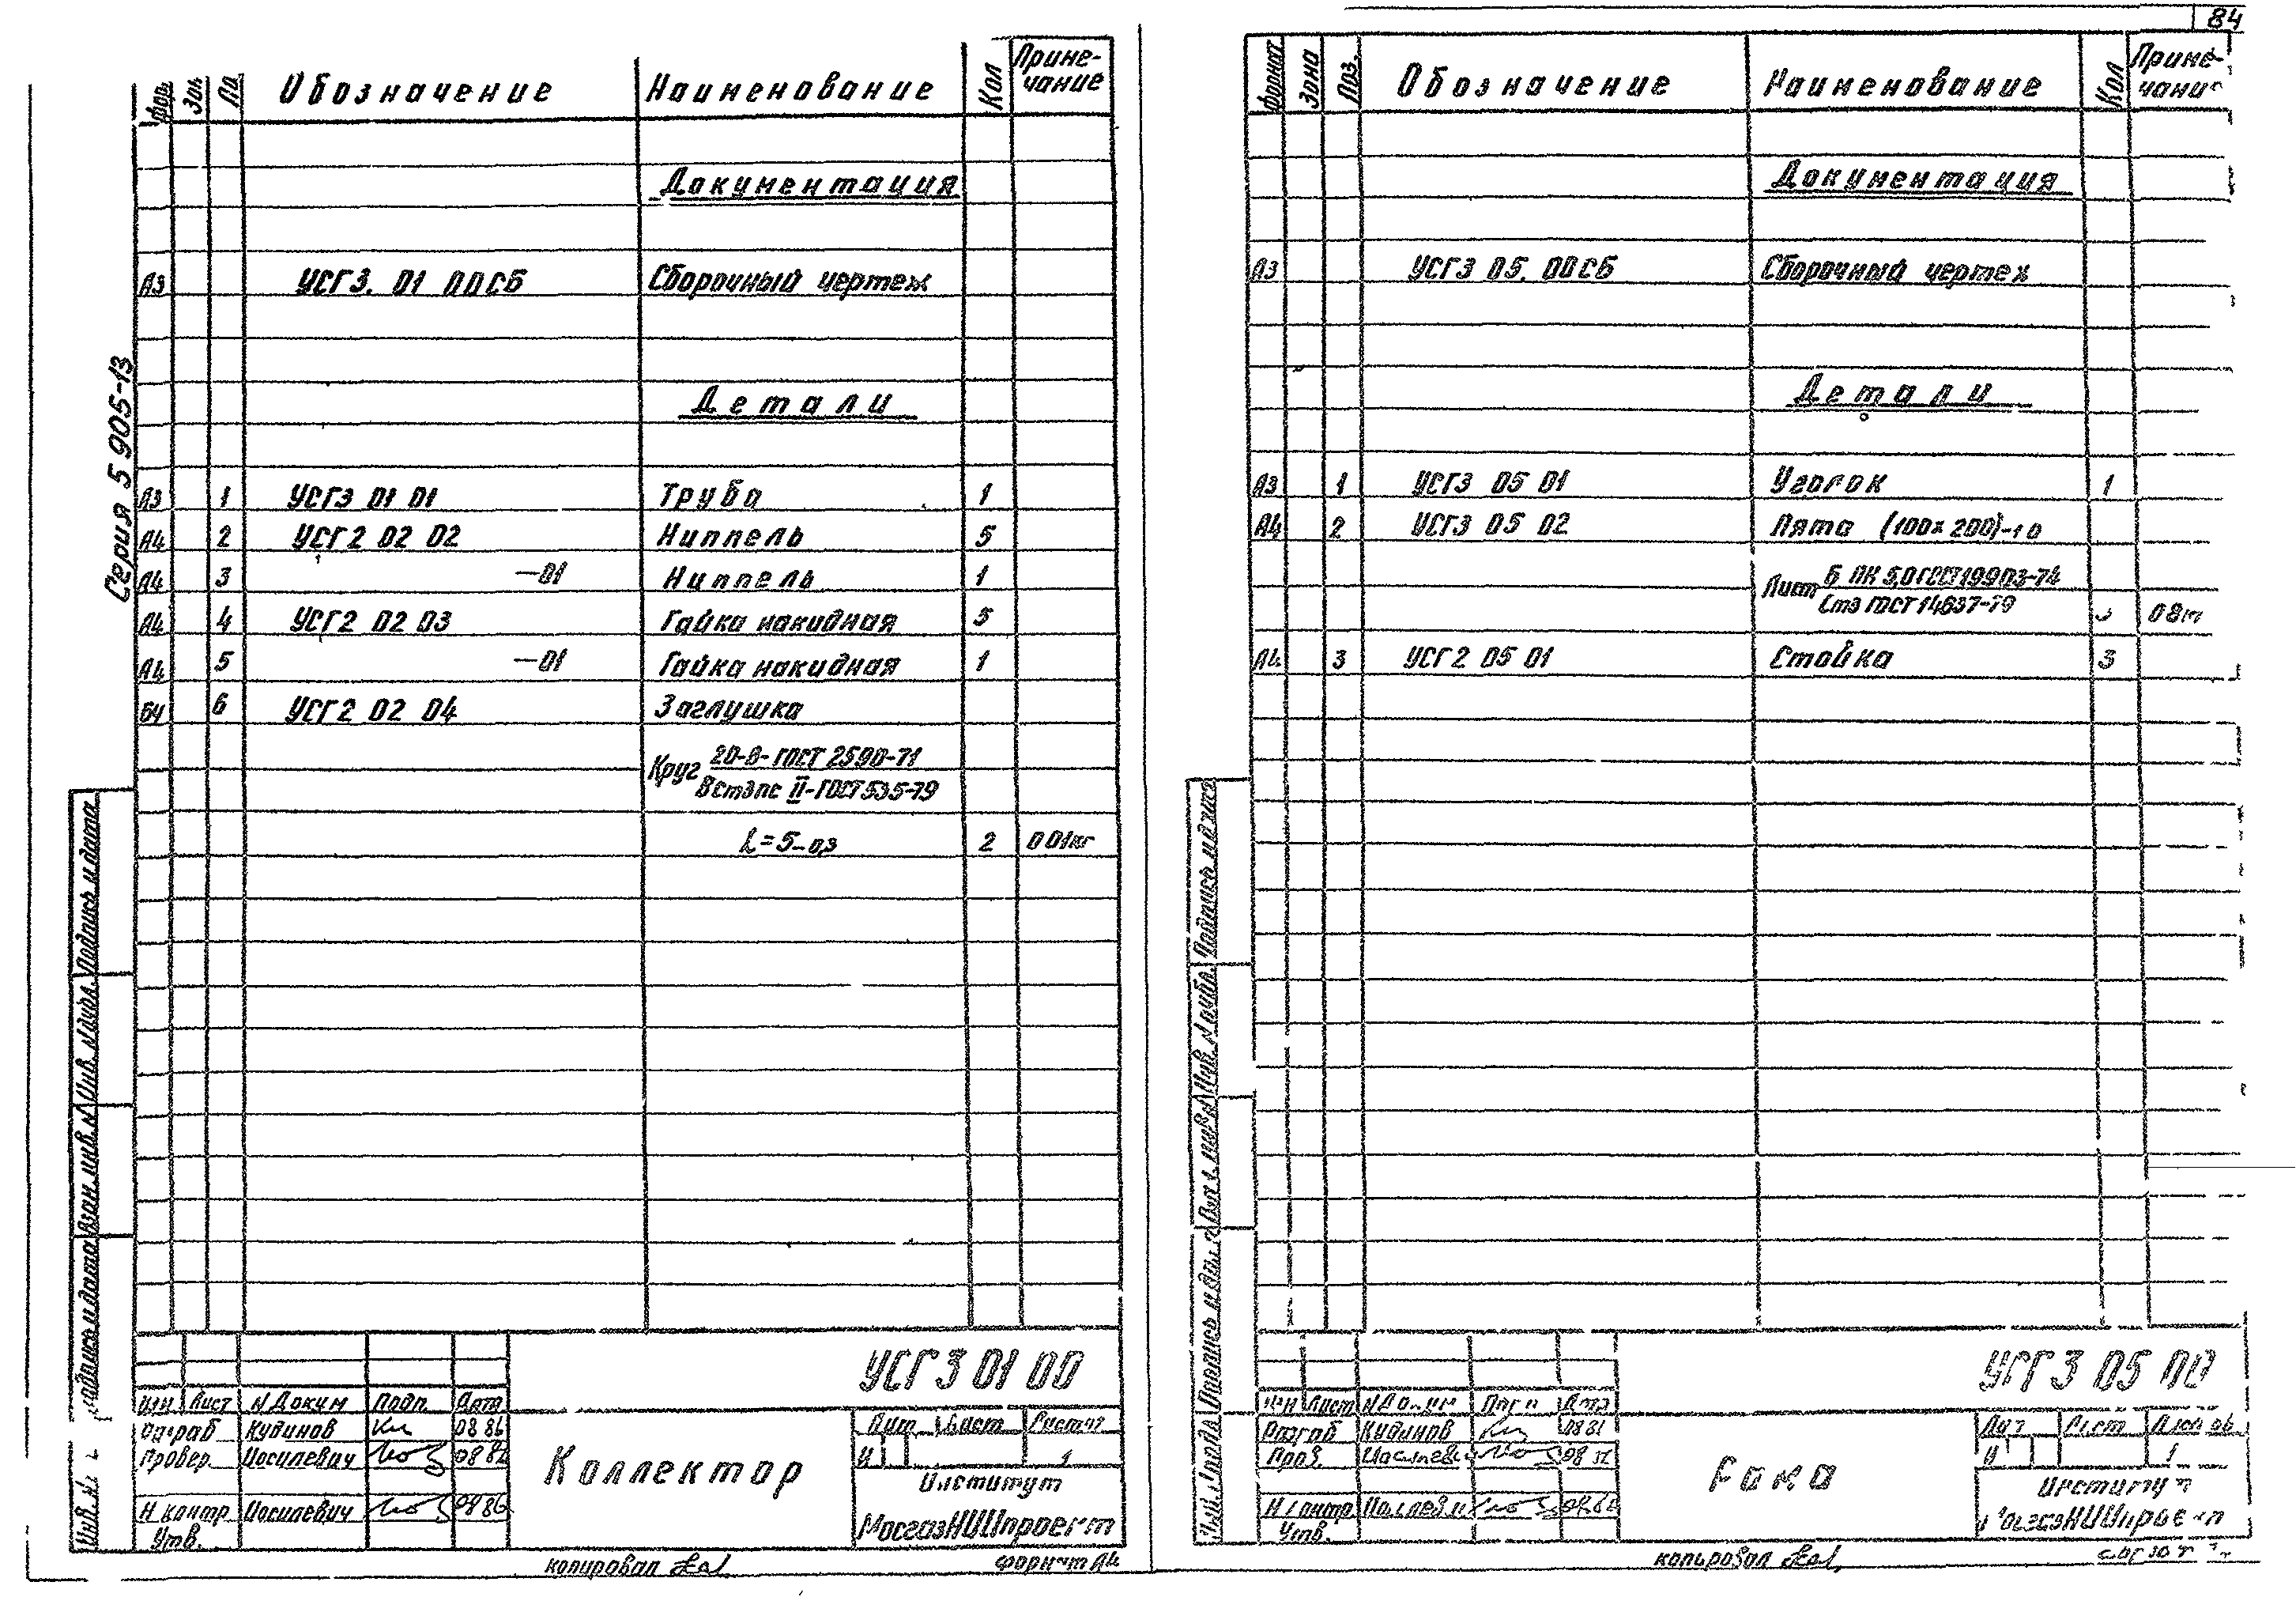 Серия 5 905-13
Фор. Зон Па Обозначение Наименование Кол Приме-
чание
Документация
А3 УСГ3. 01 00СБ Сборочный чертеж
Детали
А3 1 УСГ3 01 01 Труба 1
А4 2 УСГ2 02 02 Ниппель 5
А4 3 —01 Ниппель 1
А4 4 УСГ2 02 03 Гайка накидная 5
А4 5 —01 Гайка накидная 1
БЧ 6 УСГ2 02 04 Заглушка
Круг 20-В-ГОСТ 2590-71
ВСт3пс II-ГОСТ 535-79
L=5-0,3 2 0 01кг
Подпись и дата
Инв. N дубл.
Взам. инв. N
Подпись и дата
Инв. N
УСГ3 01 00
Изм Лист N Докум Подп. Дата
Разраб Кудинов 08 86
Провер. Иосилевич 08 86
Н контр Иосилевич 08 86
Утв.
Коллектор
Лит Лист Листов
И 1
Институт
МосгазНИИпроект
копировал
Формат А4
84
Формат Зона Поз. Обозначение Наименование Кол Приме-
чание
Документация
А3 УСГ3 05. 00СБ Сборочный чертеж
Детали
А3 1 УСГ3 05 01 Уголок 1
А4 2 УСГ3 05 02 Пята (100×200)-1 0
Лист Б ПК 5,0 ГОСТ 19903-74
Ст3 ГОСТ 14637-79 0 8кг
А4 3 УСГ2 05 01 Стойка 3
Подпись и дата
Инв. N дубл.
Взам. инв. N
Подпись и дата
УСГ3 05 00
Изм Лист N Докум Подп Дата
Разраб Кудинов
Пров. Иосилевич
Н контр Иосилевич
Утв.
Рама
Лит Лист Листов
И 1
Институт
МосгазНИИпроект
копировал